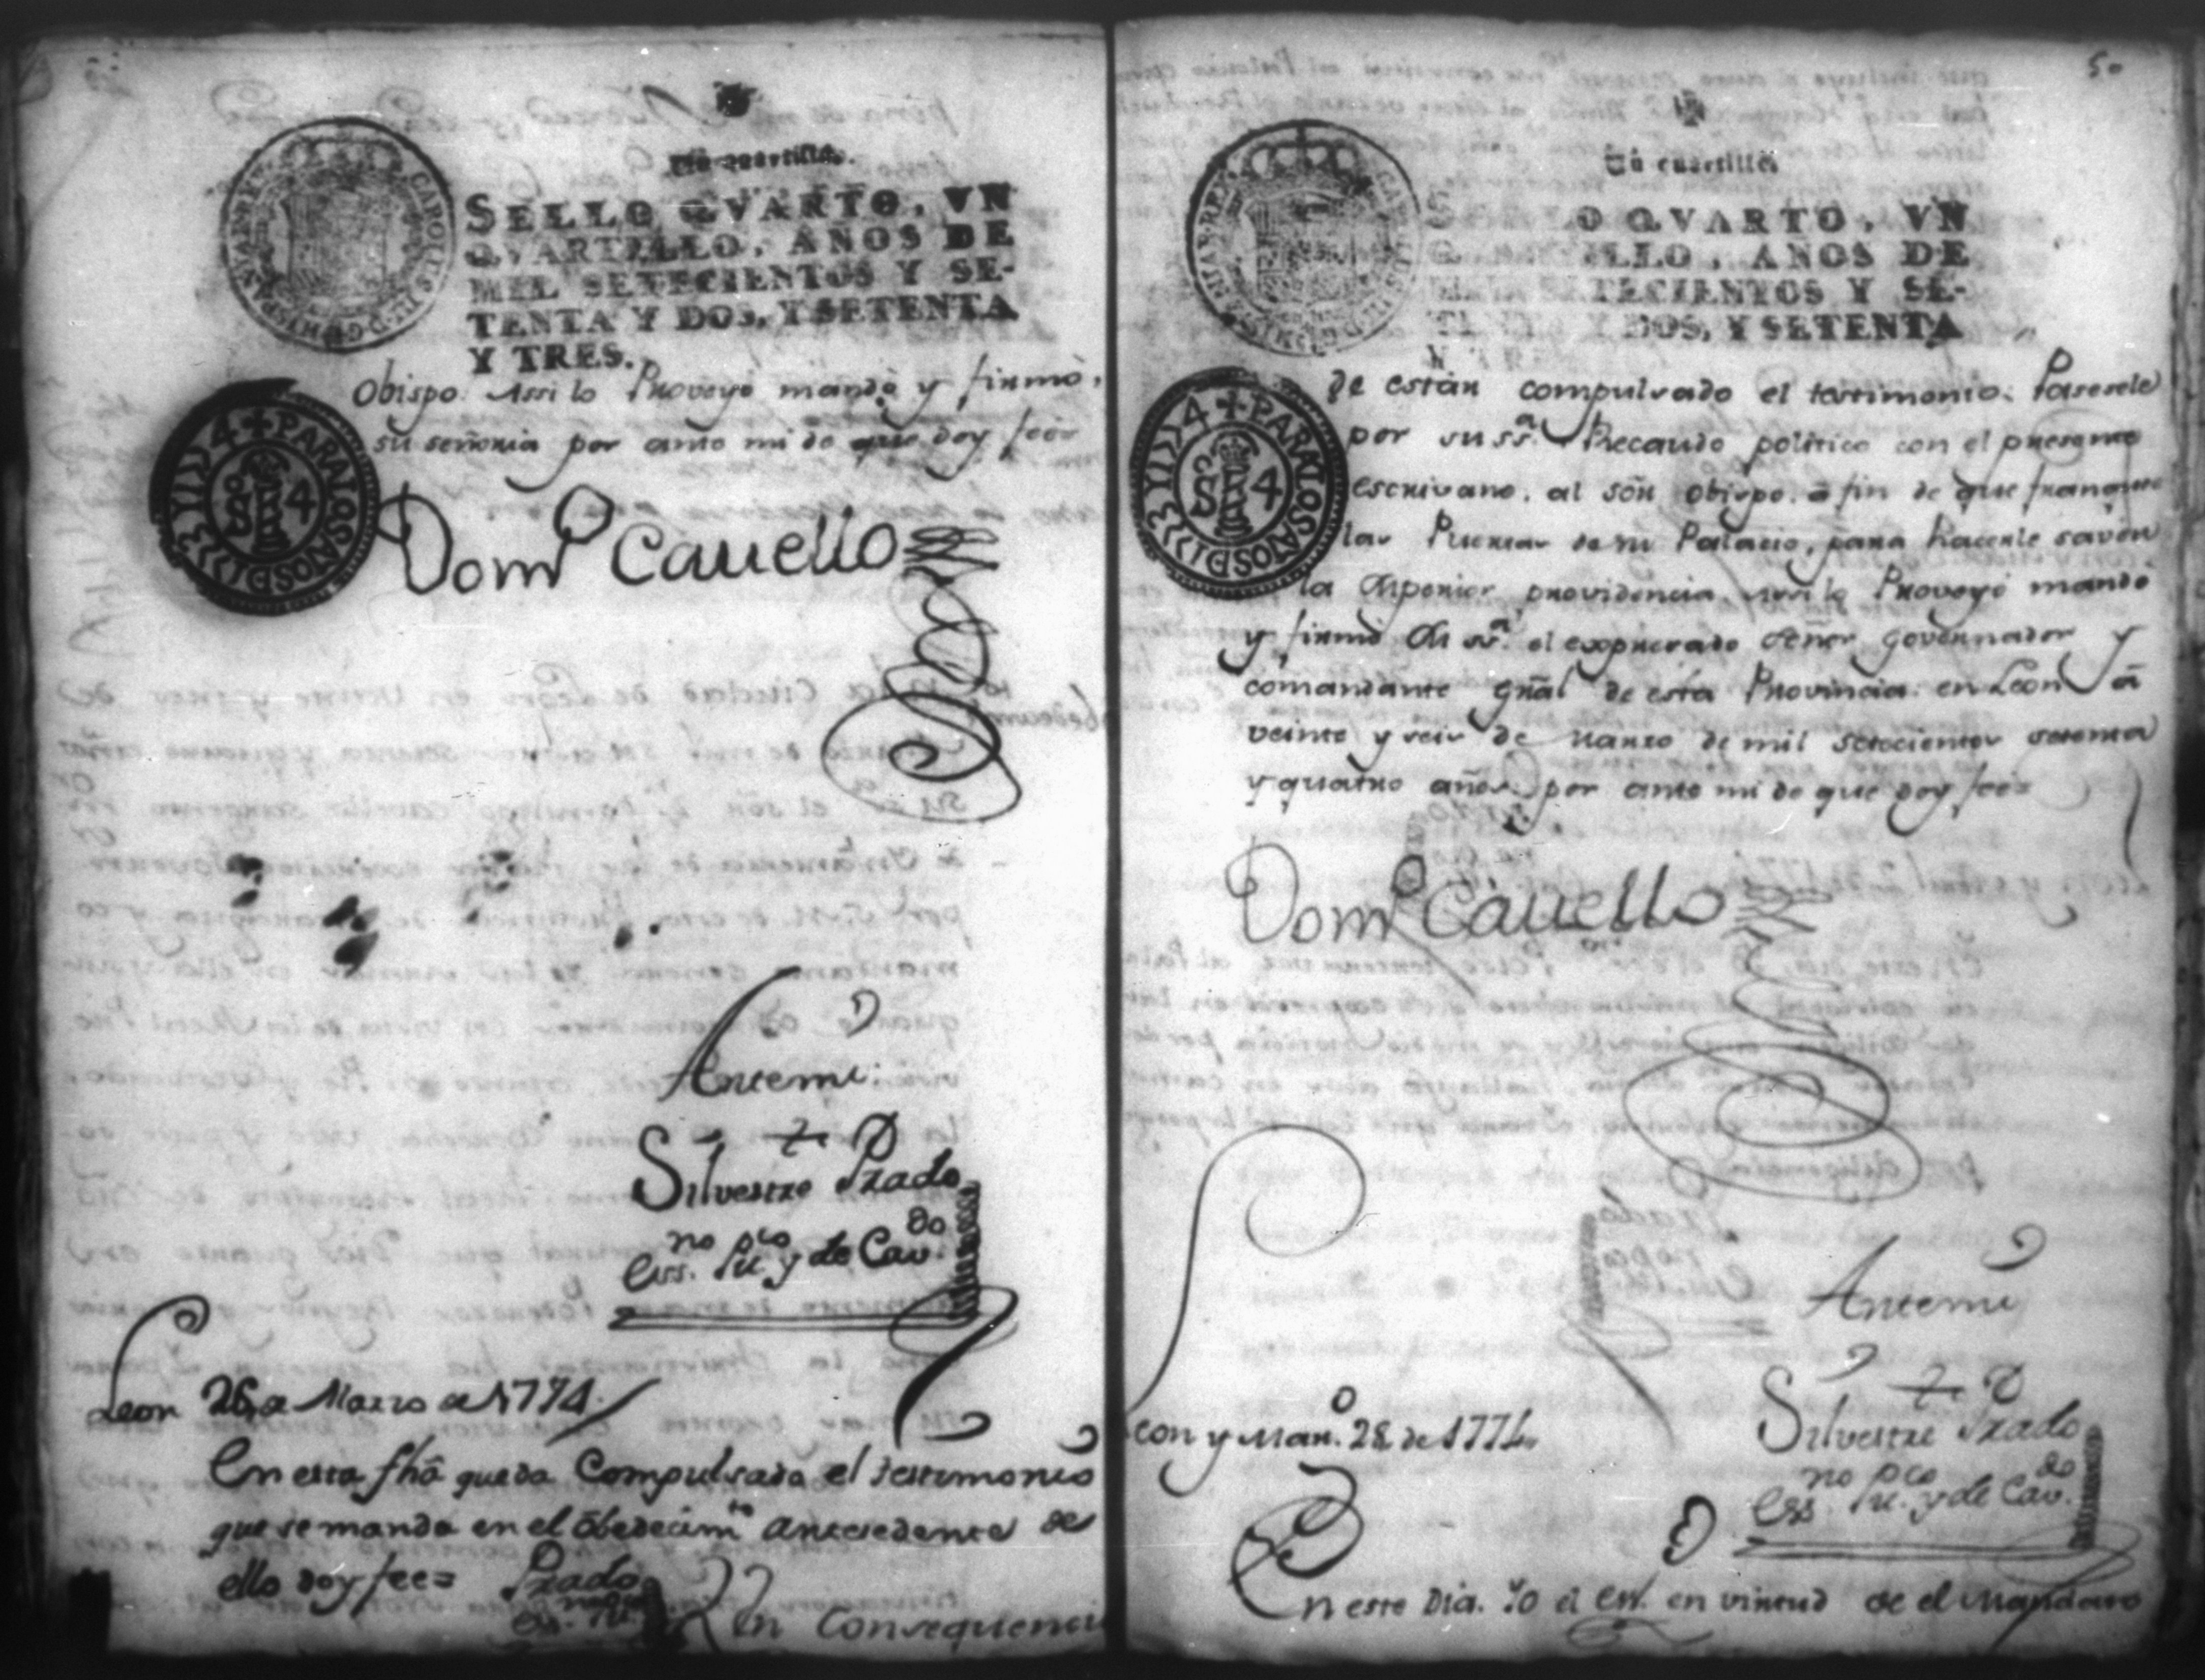 Un quartillo.
SELLO QVARTO, VN
QVARTILLO, AÑOS DE
MIL SETECIENTOS Y SE-
TENTA Y DOS, Y SETENTA
Y TRES.
CAROLUS III D G HISPANIAR REX
PARA LOS AÑOS D 1773 Y 1774
S 4
Obispo. Assi lo Proveyo mandò y firmò,
su señoria por ante mi de que doy feè=
Domº Cavello
Antemi
Silvestre Prado
Essno. Puco. y de Cavdo.
Leon 26, de Marzo de 1774.
En esta fhâ queda Compulsada el testimonio
que se manda en el obedecimto antesedente de
ello doy fee= Prado
En Consequencia
50
Un cuartillo.
SELLO QVARTO, VN
QVARTILLO, AÑOS DE
MIL SETECIENTOS Y SE-
TENTA Y DOS, Y SETENTA
Y TRES
PARA LOS AÑOS D 1773 Y 1774
S 4
de estàr compulsado el testimonio. Pasesele
por su ssª. Recaudo politico con el presente
escrivano, al señ obispo. à fin de que franquee
las Puertas de su Palacio, para hacerle saver
la Superior providencia. Assi lo Proveyò mandò
y firmò Su ssª. el expresado Señor Governador y
comandante gñal de esta Provincia. en Leon â
veinte y seis de Marzo de mil setecientos setenta
y quatro años. por ante mi de que doy feè=
Domº Cavello
Antemi
Silvestre Prado
Essno. Puco. y de Cavdo.
Leon y Marzo. 28 de 1774.
En este Dia. Yo el Ess. en virtud de el Mandato